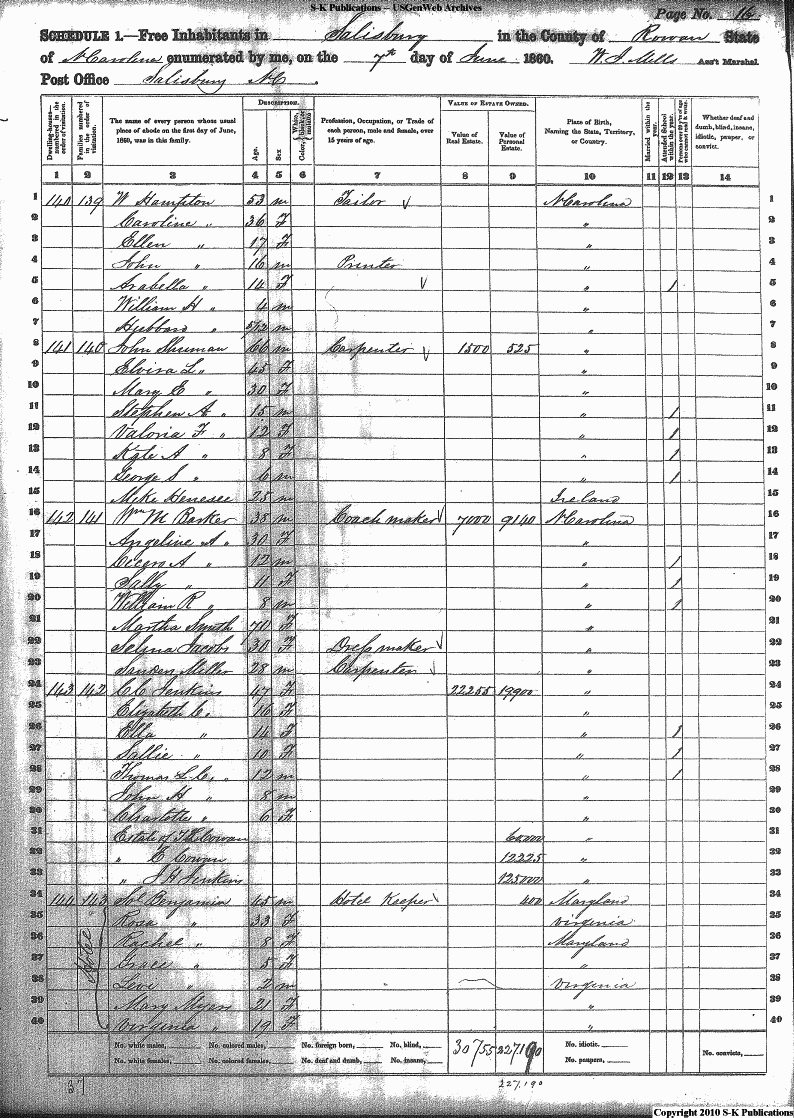 S-K Publications – USGenWeb Archives
Page No. 16
SCHEDULE 1.—Free Inhabitants in Salisbury in the County of Rowan State
of N Carolina enumerated by me, on the 7th day of June 1860. W. J. Mills Ass't Marshal.
Post Office Salisbury N C.
Dwelling-houses—numbered in the order of visitation.
Families numbered in the order of visitation.
The name of every person whose usual place of abode on the first day of June, 1860, was in this family.
DESCRIPTION.
Age.
Sex
Color,
Profession, Occupation, or Trade of each person, male and female, over 15 years of age.
VALUE OF ESTATE OWNED.
Value of Real Estate.
Value of Personal Estate.
Place of Birth, Naming the State, Territory, or Country.
Married within the year.
Attended School within the year.
Whether deaf and dumb, blind, insane, idiotic, pauper, or convict.
1 2 3 4 5 6 7 8 9 10 11 12 13 14
1 140 139 W Hampton 53 m Tailor N Carolina 1
2 Caroline " 36 F " 2
3 Ellen " 17 F " 3
4 John " 16 m Printer " 4
5 Arabella " 14 F " / 5
6 William H " 4 m " 6
7 Hubbard " 5/12 m " 7
8 141 140 John Shuman 66 m Carpenter 1500 525 " 8
9 Elvira L " 45 F " 9
10 Mary E " 30 F " 10
11 Stephen A " 15 m " / 11
12 Valoria F " 12 F " / 12
13 Kate A " 8 F " / 13
14 George S " 6 m " / 14
15 Mike Henesee 25 m Ireland 15
16 142 141 Wm M Barker 38 m Coach maker 7000 9140 N Carolina 16
17 Angeline A " 30 F " 17
18 Cicero A " 12 m " / 18
19 Sally " 11 F " / 19
20 William R " 8 m " / 20
21 Martha Smith 70 F " 21
22 Selina Jacobs 30 F Dress maker " 22
23 Sanders Miller 28 m Carpenter " 23
24 143 142 C C Jenkins 47 F 22255 19900 " 24
25 Elizabeth C. 16 F " 25
26 Ella " 14 F " / 26
27 Sallie " 10 F " / 27
28 Thomas L C. " 12 m " / 28
29 John H " 8 m " 29
30 Charlotte " 6 F " 30
31 Estate of Cowan " 31
32 " E Cowan 12225 " 32
33 " J H Jenkins 125000 33
34 144 143 Sol Benjamin 45 m Hotel Keeper 400 Maryland 34
35 Rosa " 33 F Virginia 35
36 Rachel " 8 F Maryland 36
37 Hotel Grace " 5 F " 37
38 Levi " 2 m Virginia 38
39 Mary Myers 21 F " 39
40 Virginia " 19 F " 40
No. white males, No. colored males, No. foreign born, No. blind, 30755 227,190 No. idiotic.
No. white females, No. colored females, No. deaf and dumb, No. insane, No. paupers, No. convicts,
37
227,190
Copyright 2010 S-K Publications